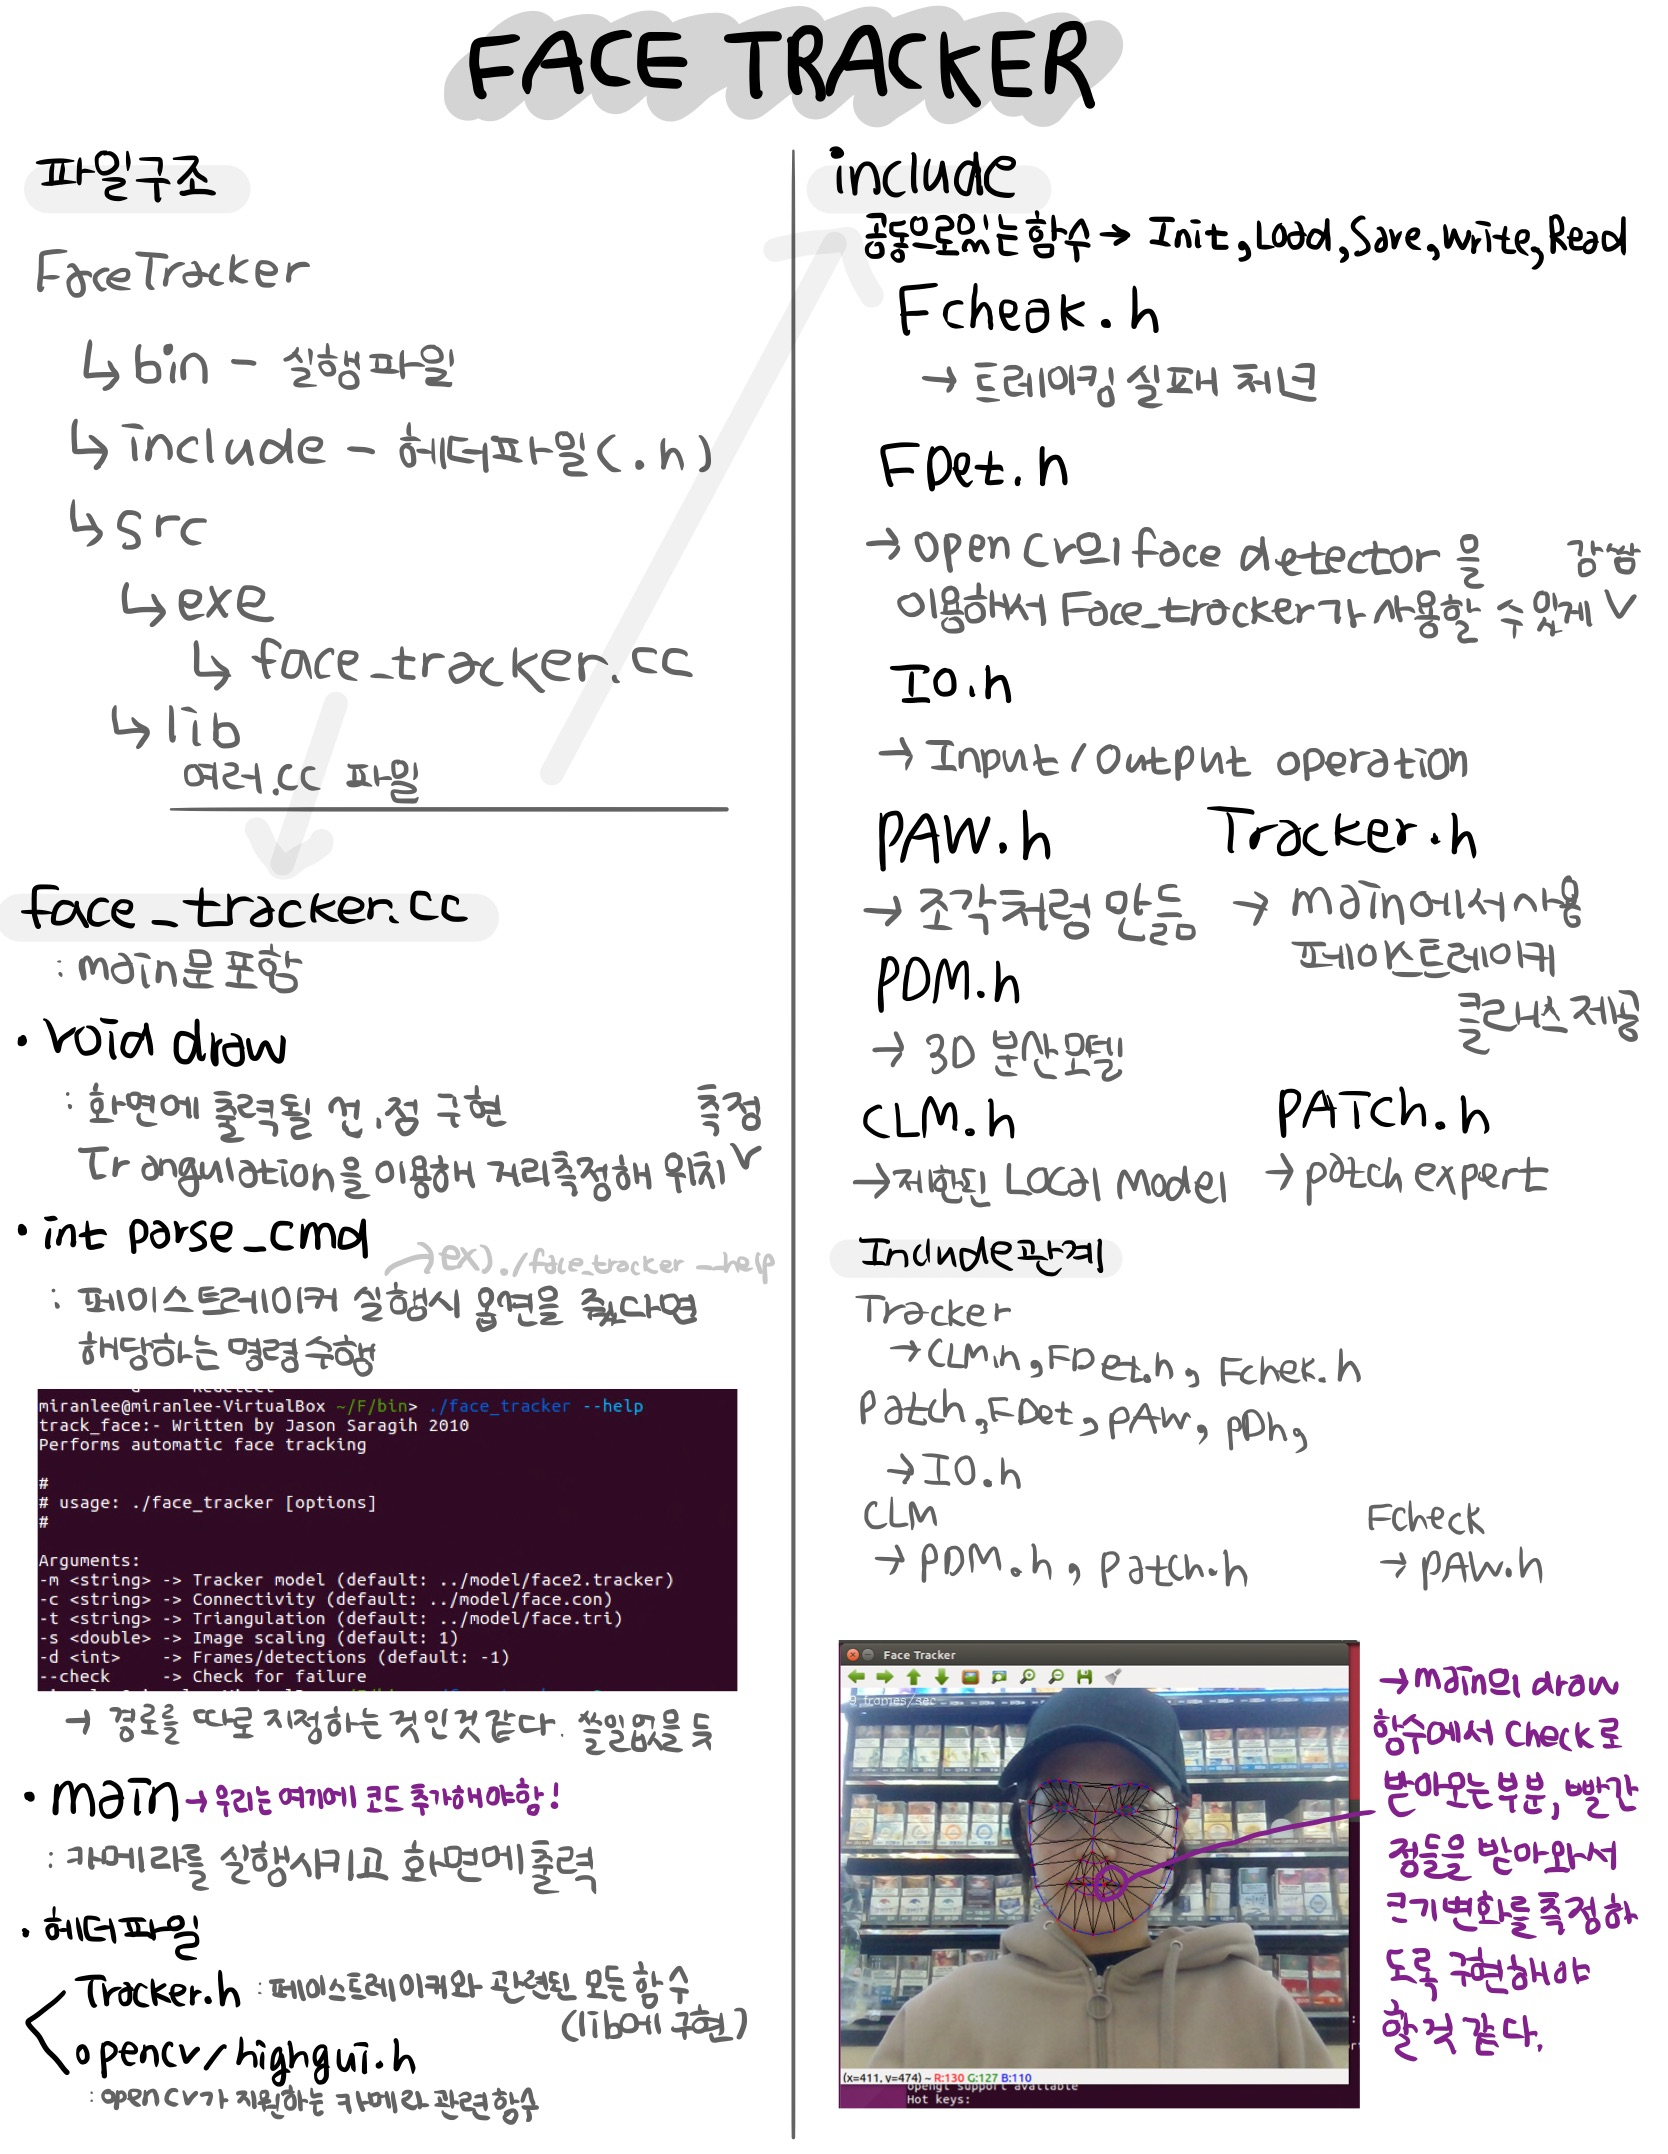 FACE TRACKER
파일구조
FaceTracker
↳ bin - 실행파일
↳ include - 헤더파일(.h)
↳ src
↳ exe
↳ face_tracker.cc
↳ lib
여러.cc 파일
face_tracker.cc
: main문 포함
• void draw
: 화면에 출력될 선,점 구현
측정
Trangulation을 이용해 거리측정해 위치 V
• int parse_cmd
→ex) ./face_tracker --help
: 페이스트레이커 실행시 옵션을 줬다면
해당하는 명령 수행
miranlee@miranlee-VirtualBox ~/F/bin> ./face_tracker --help
track_face:- Written by Jason Saragih 2010
Performs automatic face tracking
#
# usage: ./face_tracker [options]
#
Arguments:
-m <string> -> Tracker model (default: ../model/face2.tracker)
-c <string> -> Connectivity (default: ../model/face.con)
-t <string> -> Triangulation (default: ../model/face.tri)
-s <double> -> Image scaling (default: 1)
-d <int>    -> Frames/detections (default: -1)
--check     -> Check for failure
→ 경로를 따로 지정하는 것인것 같다. 쓸일없을 듯
• main → 우리는 여기에 코드 추가해야함!
: 카메라를 실행시키고 화면에 출력
• 헤더파일
Tracker.h : 페이스트레이커와 관련된 모든 함수
(lib에 구현)
opencv/highgui.h
: opencv가 지원하는 카메라 관련함수
include
공동으로있는 함수 → Init, Load, Save, Write, Read
Fcheak.h
→ 트레이킹 실패 체크
FDet.h
→ open cv의 face detector 을
감쌈
이용해서 Face_tracker가 사용할 수 있게 V
IO.h
→ Input/Output operation
PAW.h
→ 조각처럼 만듦
Tracker.h
→ main에서 사용
페이스트레이커
클래스 제공
PDM.h
→ 3D 분산모델
CLM.h
→ 제한된 Local Model
PATCh.h
→ patch expert
Include관계
Tracker
→ CLM.h, FDet.h, Fchek.h
Patch, FDet, PAW, PDh,
→ IO.h
CLM
→ PDM.h, Patch.h
Fcheck
→ PAW.h
Face Tracker
9 frames/sec
(x=411, y=474) ~ R:130 G:127 B:110
opengl support available
Hot keys:
→ main의 draw
함수에서 Check로
받아오는 부분, 빨간
점들을 받아와서
크기변화를 측정하
도록 구현해야
할 것 같다.